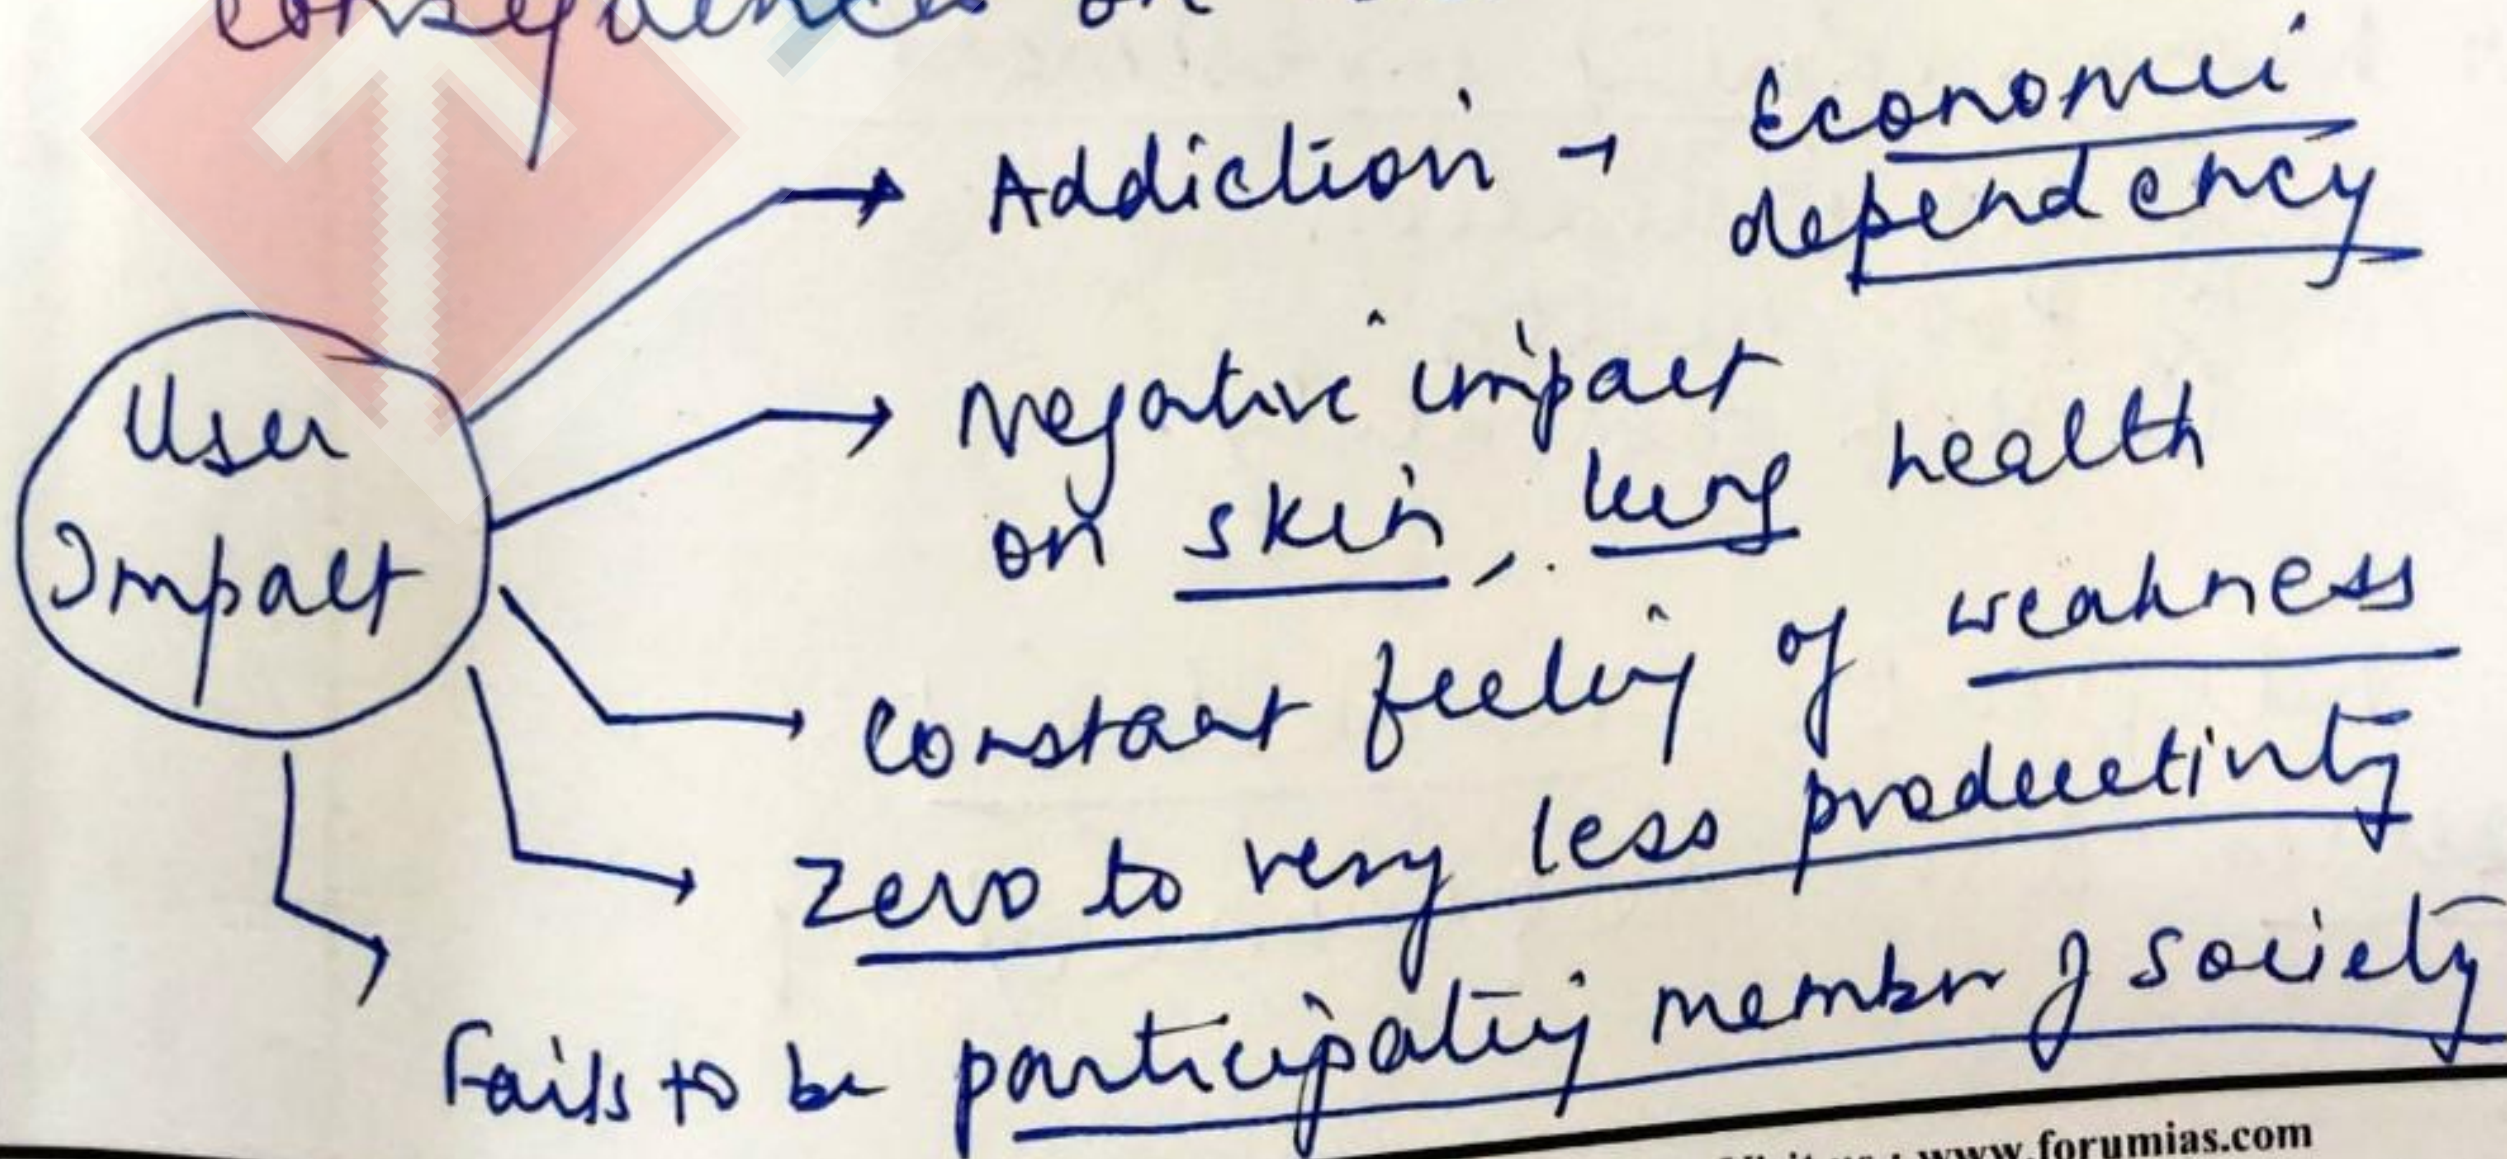 Consequences on
Addiction → Economic
dependency
Negative impact
on skin, lung health
User
Impact
Constant feeling of weakness
Zero to very less productivity
Fails to be participating member of society
Visit us : www.forumias.com